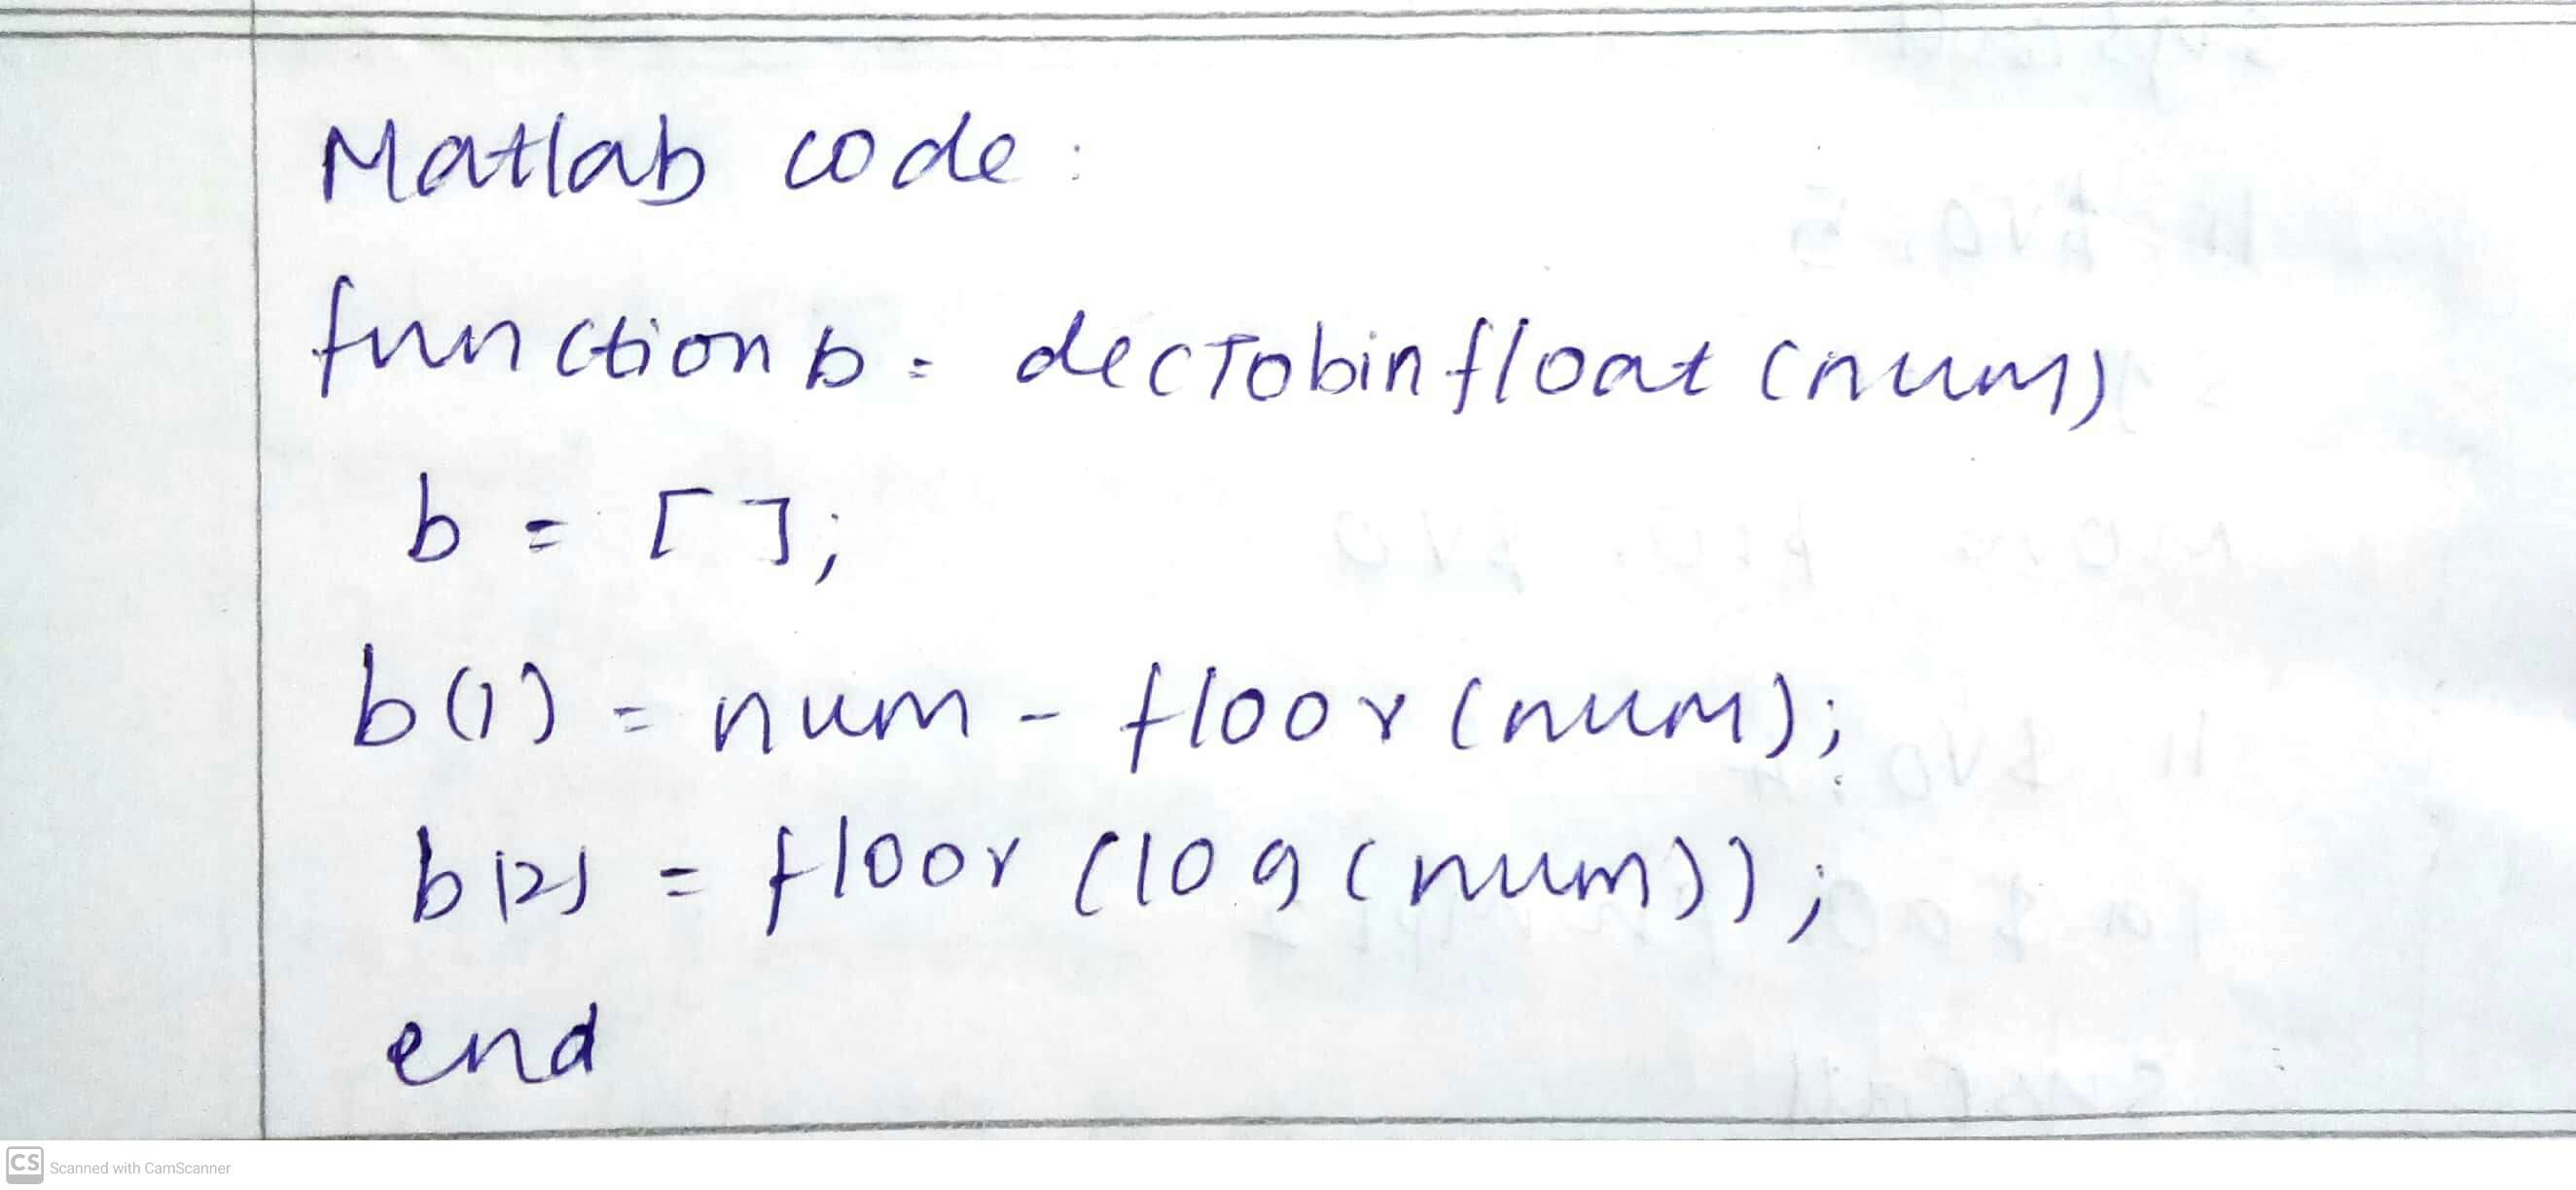 Matlab code:
function b = decTobinfloat (num)
b = [ ];
b(1) = num - floor (num);
b(2) = floor (log (num));
end
CS Scanned with CamScanner